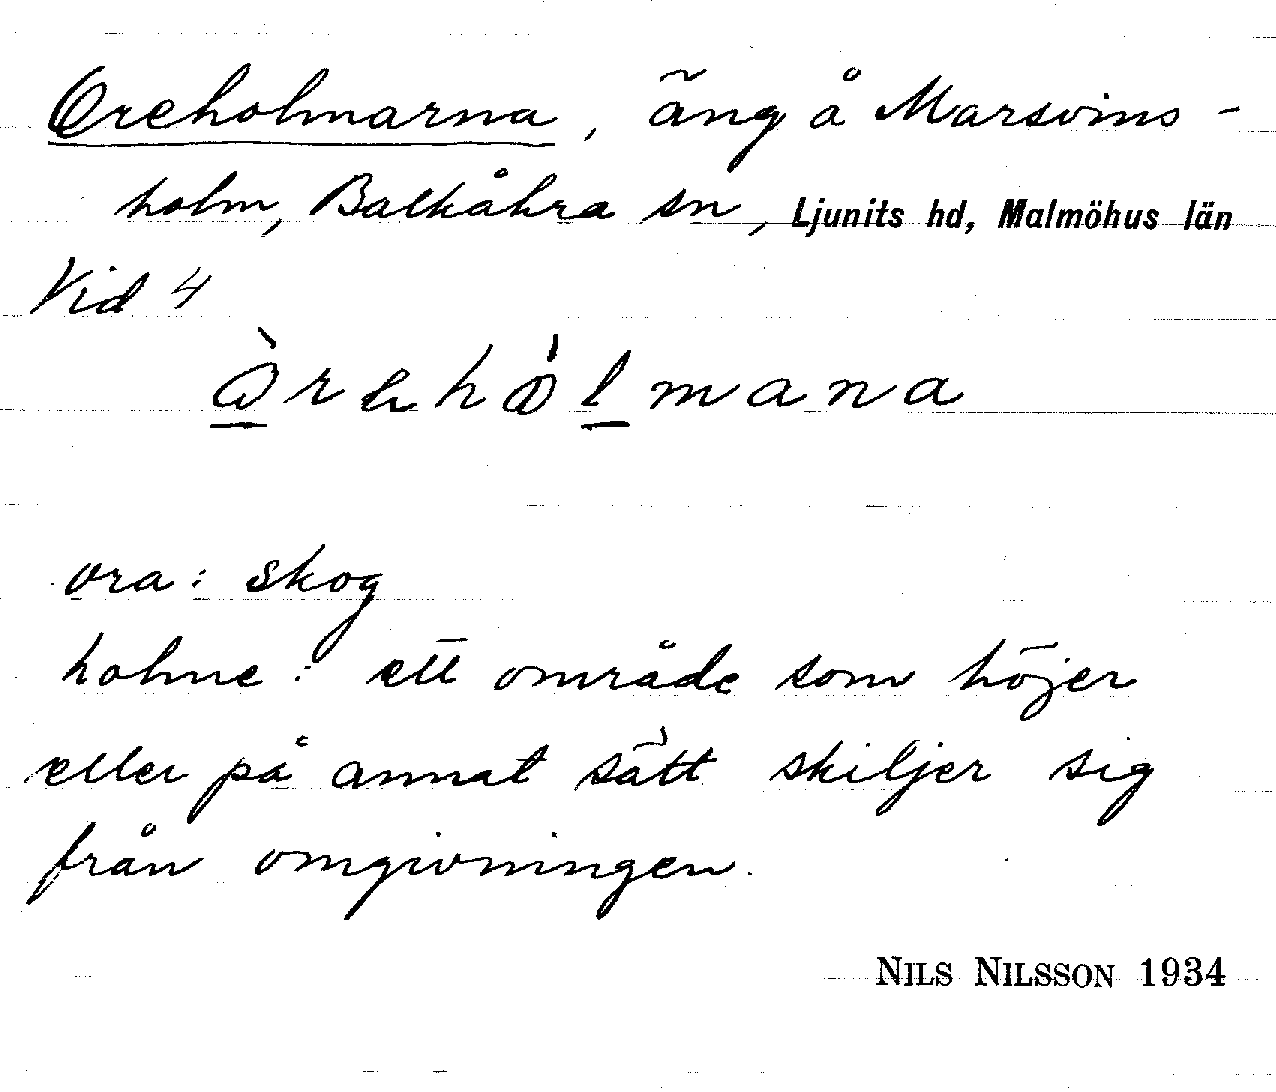 Oreholmarna, äng å Marsvins-
holm, Balkåkra sn, Ljunits hd, Malmöhus län
Vid 4
òrəhòlmana
ora: skog
holme: ett område som höjer
eller på annat sätt skiljer sig
från omgivningen.
NILS NILSSON 1934